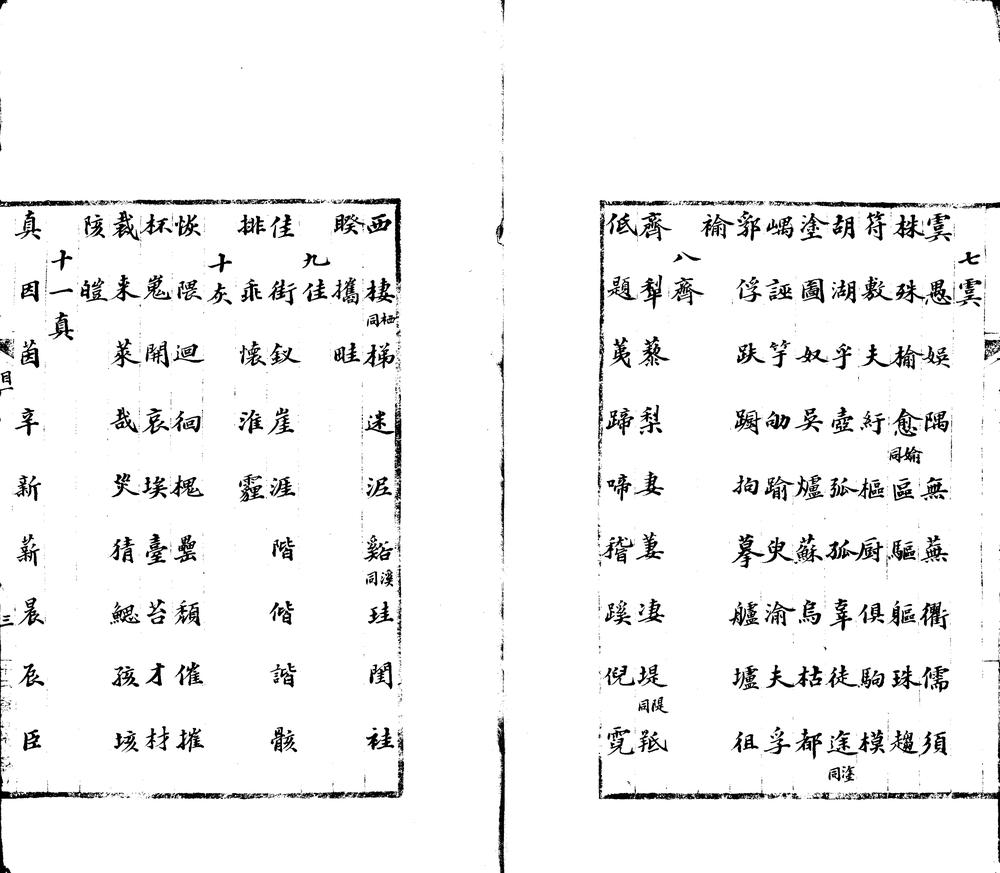 七虞
虞愚娛隅無蕪衢儒須
株殊榆愈同婾區驅軀珠趨
符敷夫紆樞厨俱駒模
胡湖乎壺弧孤辜徒途同塗
塗圖奴吳爐蘇烏枯都
嵎誣竽劬踰臾渝夫孚
郛俘趺躕拘摹艫壚徂
褕
八齊
齊犁藜梨妻萋凄堤同隄羝
低題荑蹄啼稽蹊倪霓
西棲同栖梯迷泥谿同溪珪閨袿
睽攜畦
九佳
佳街釵崖涯階偕諧骸
排乖懷淮霾
十灰
恢隈迴徊槐罍頹催摧
杯嵬開哀埃臺苔才材
裁來萊哉災猜鰓孩垓
陔皚
十一真
真因茵辛新薪晨辰臣
目
三